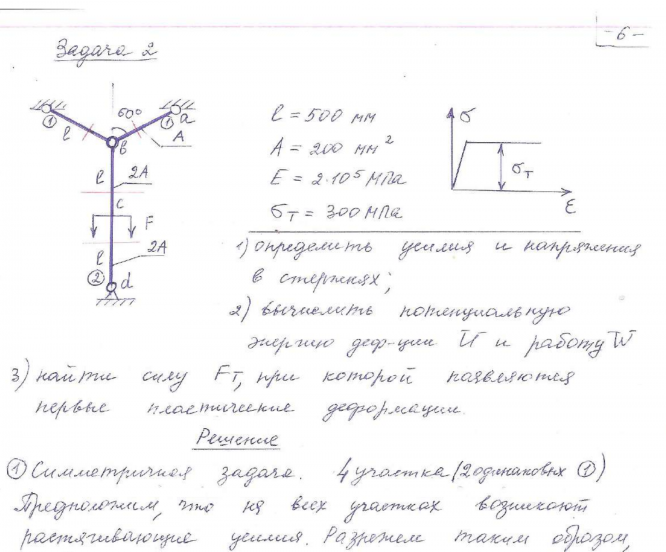 - 6 -
Задача 2
60°
① ① a
l b A
l = 500 мм
A = 200 мм²
E = 2·10⁵ МПа
σт = 300 МПа
σ
σт
ε
l 2A
c
F
l 2A
② d
1) определить усилия и напряжения
в стержнях;
2) вычислить потенциальную
энергию деф-ции U и работу W
3) найти силу Fт, при которой появляются
первые пластические деформации.
Решение
① Симметричная задача. 4 участка (2 одинаковых ①)
Предположим, что на всех участках возникают
растягивающие усилия. Разрежем таким образом,